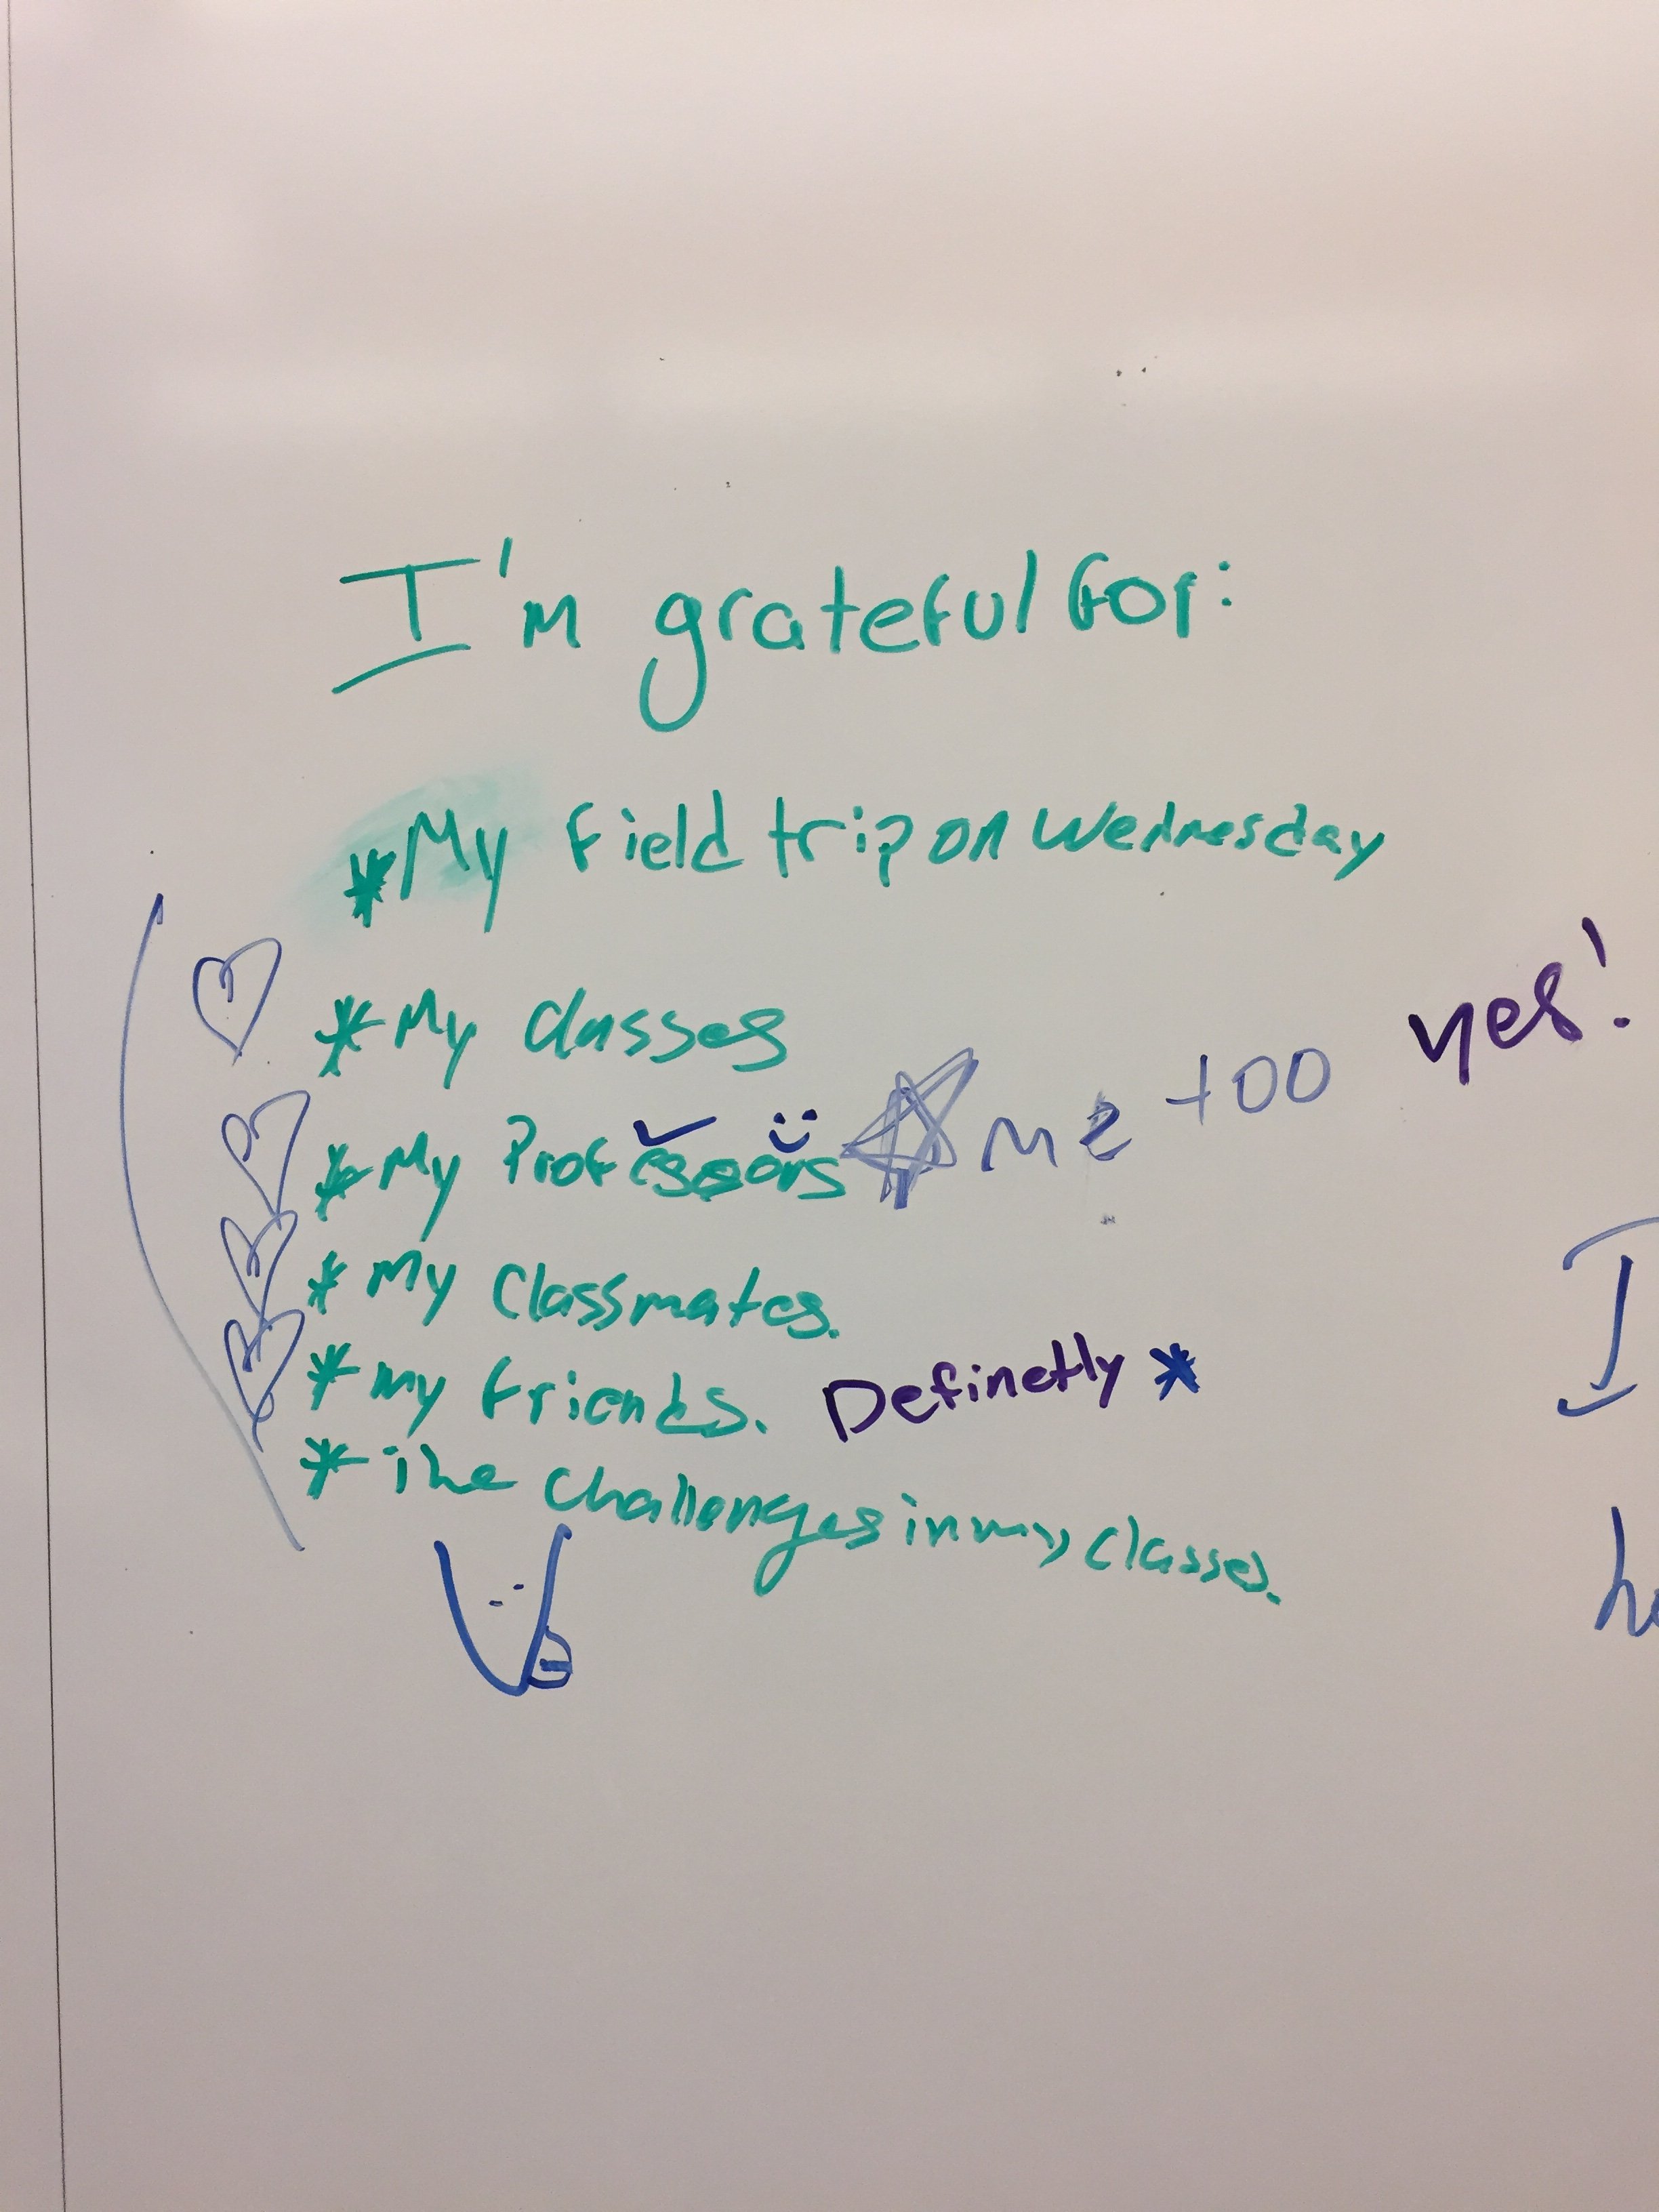 I'm grateful for:
*My field trip on Wednesday
*My classes
yes!
*My Professors me too
*My Classmates.
*my friends. Definetly *
*The Challenges in my classes.
I